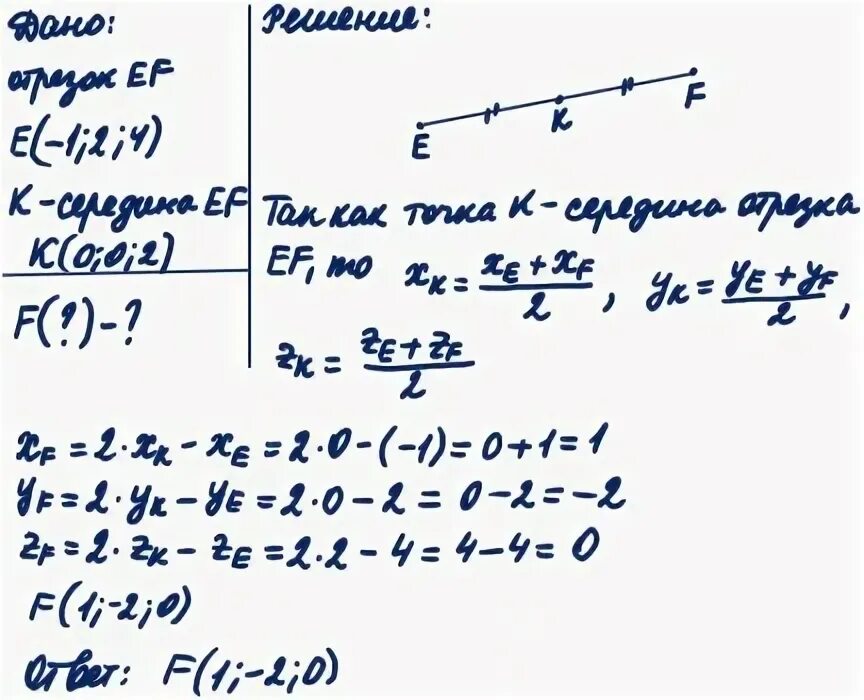 Дано:
отрезок EF
E(-1;2;4)
K-середина EF
K(0;0;2)
F(?)-?
Решение:
E K F
Так как точка K-середина отрезка
EF, то x_K = (x_E + x_F)/2, y_K = (y_E + y_F)/2,
z_K = (z_E + z_F)/2
x_F = 2·x_K - x_E = 2·0-(-1)=0+1=1
y_F = 2·y_K - y_E = 2·0-2=0-2=-2
z_F = 2·z_K - z_E = 2·2-4=4-4=0
F(1;-2;0)
Ответ: F(1;-2;0)